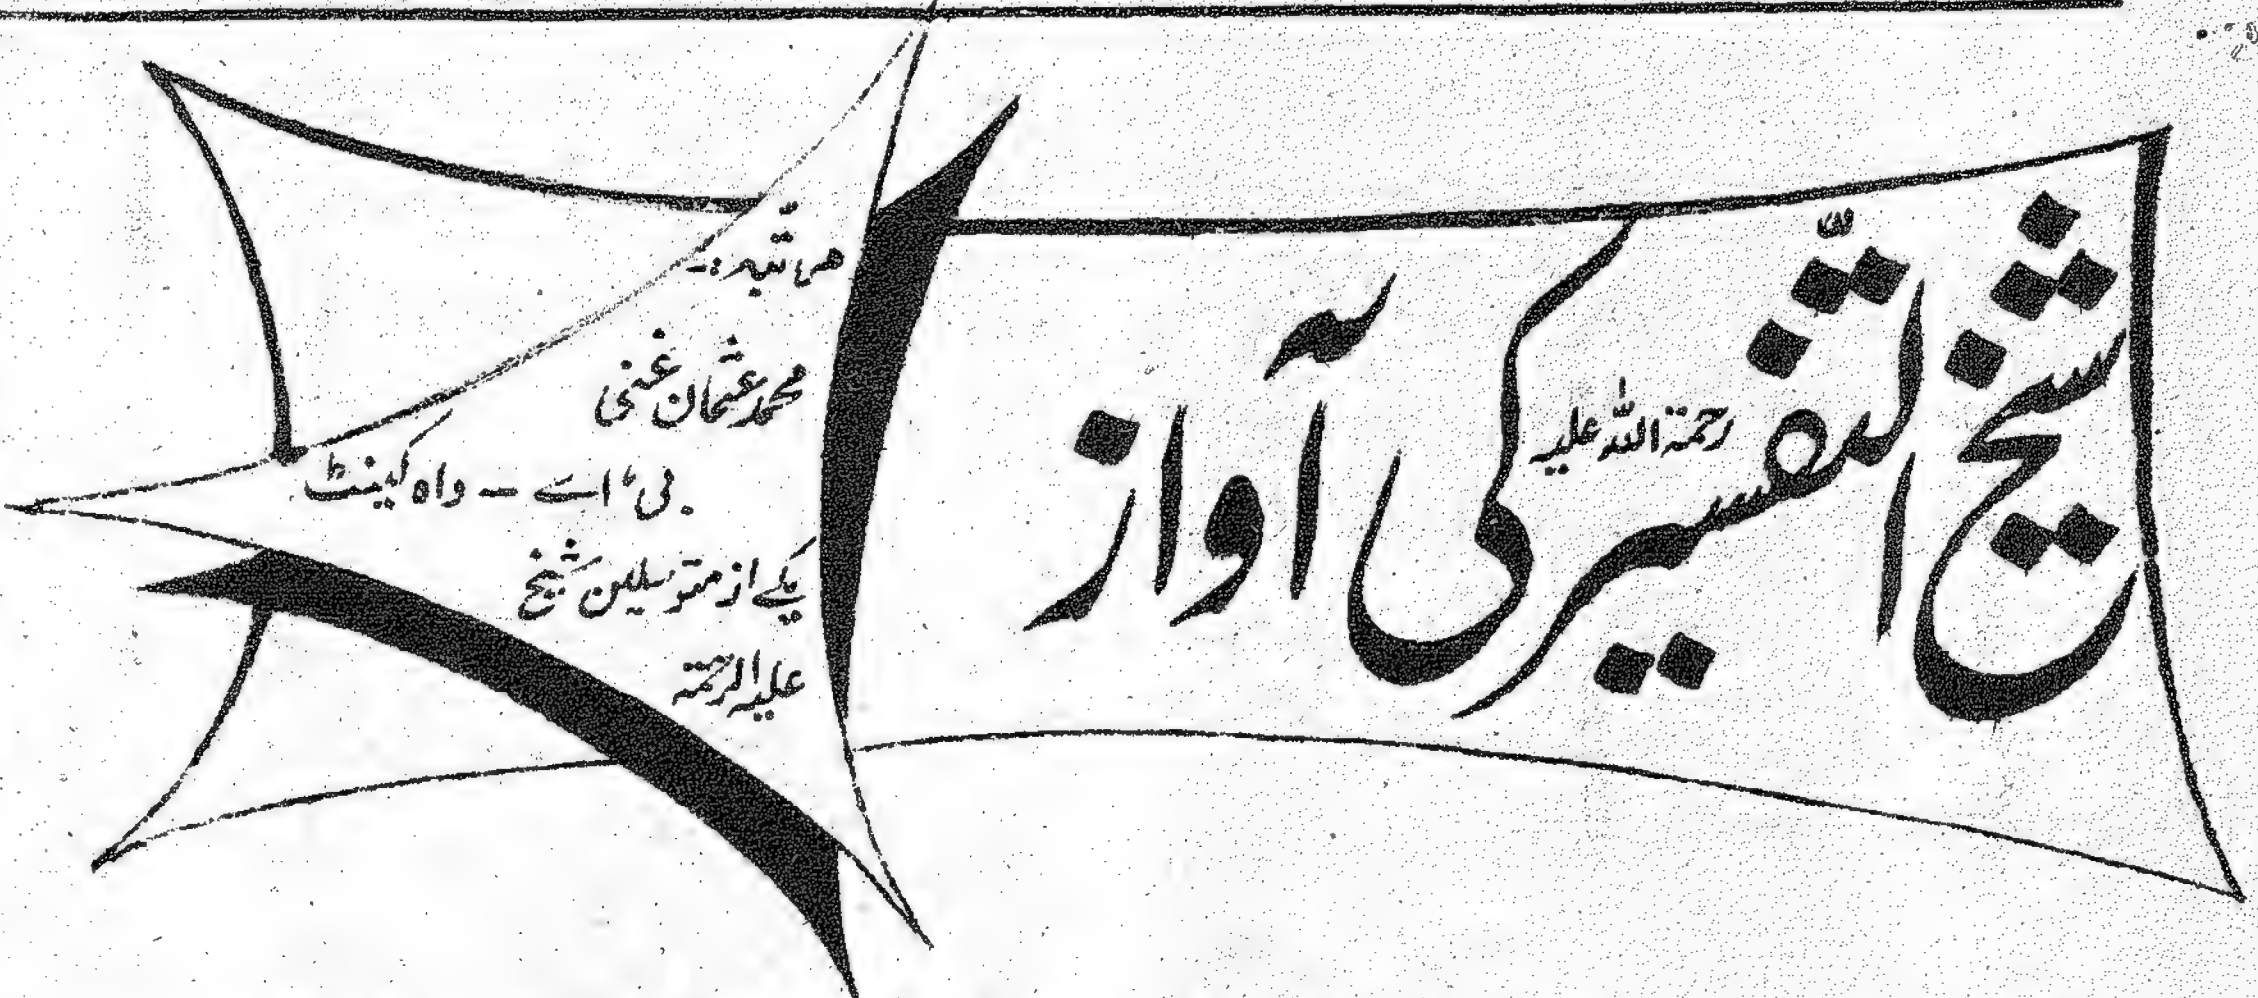 شیخ التفسیر رحمۃ اللہ علیہ کی آواز
مرتبہ:-
محمد عثمان غنی
بی، اے — واہ کینٹ
یکے از متوسلین شیخ
علیہ الرحمۃ